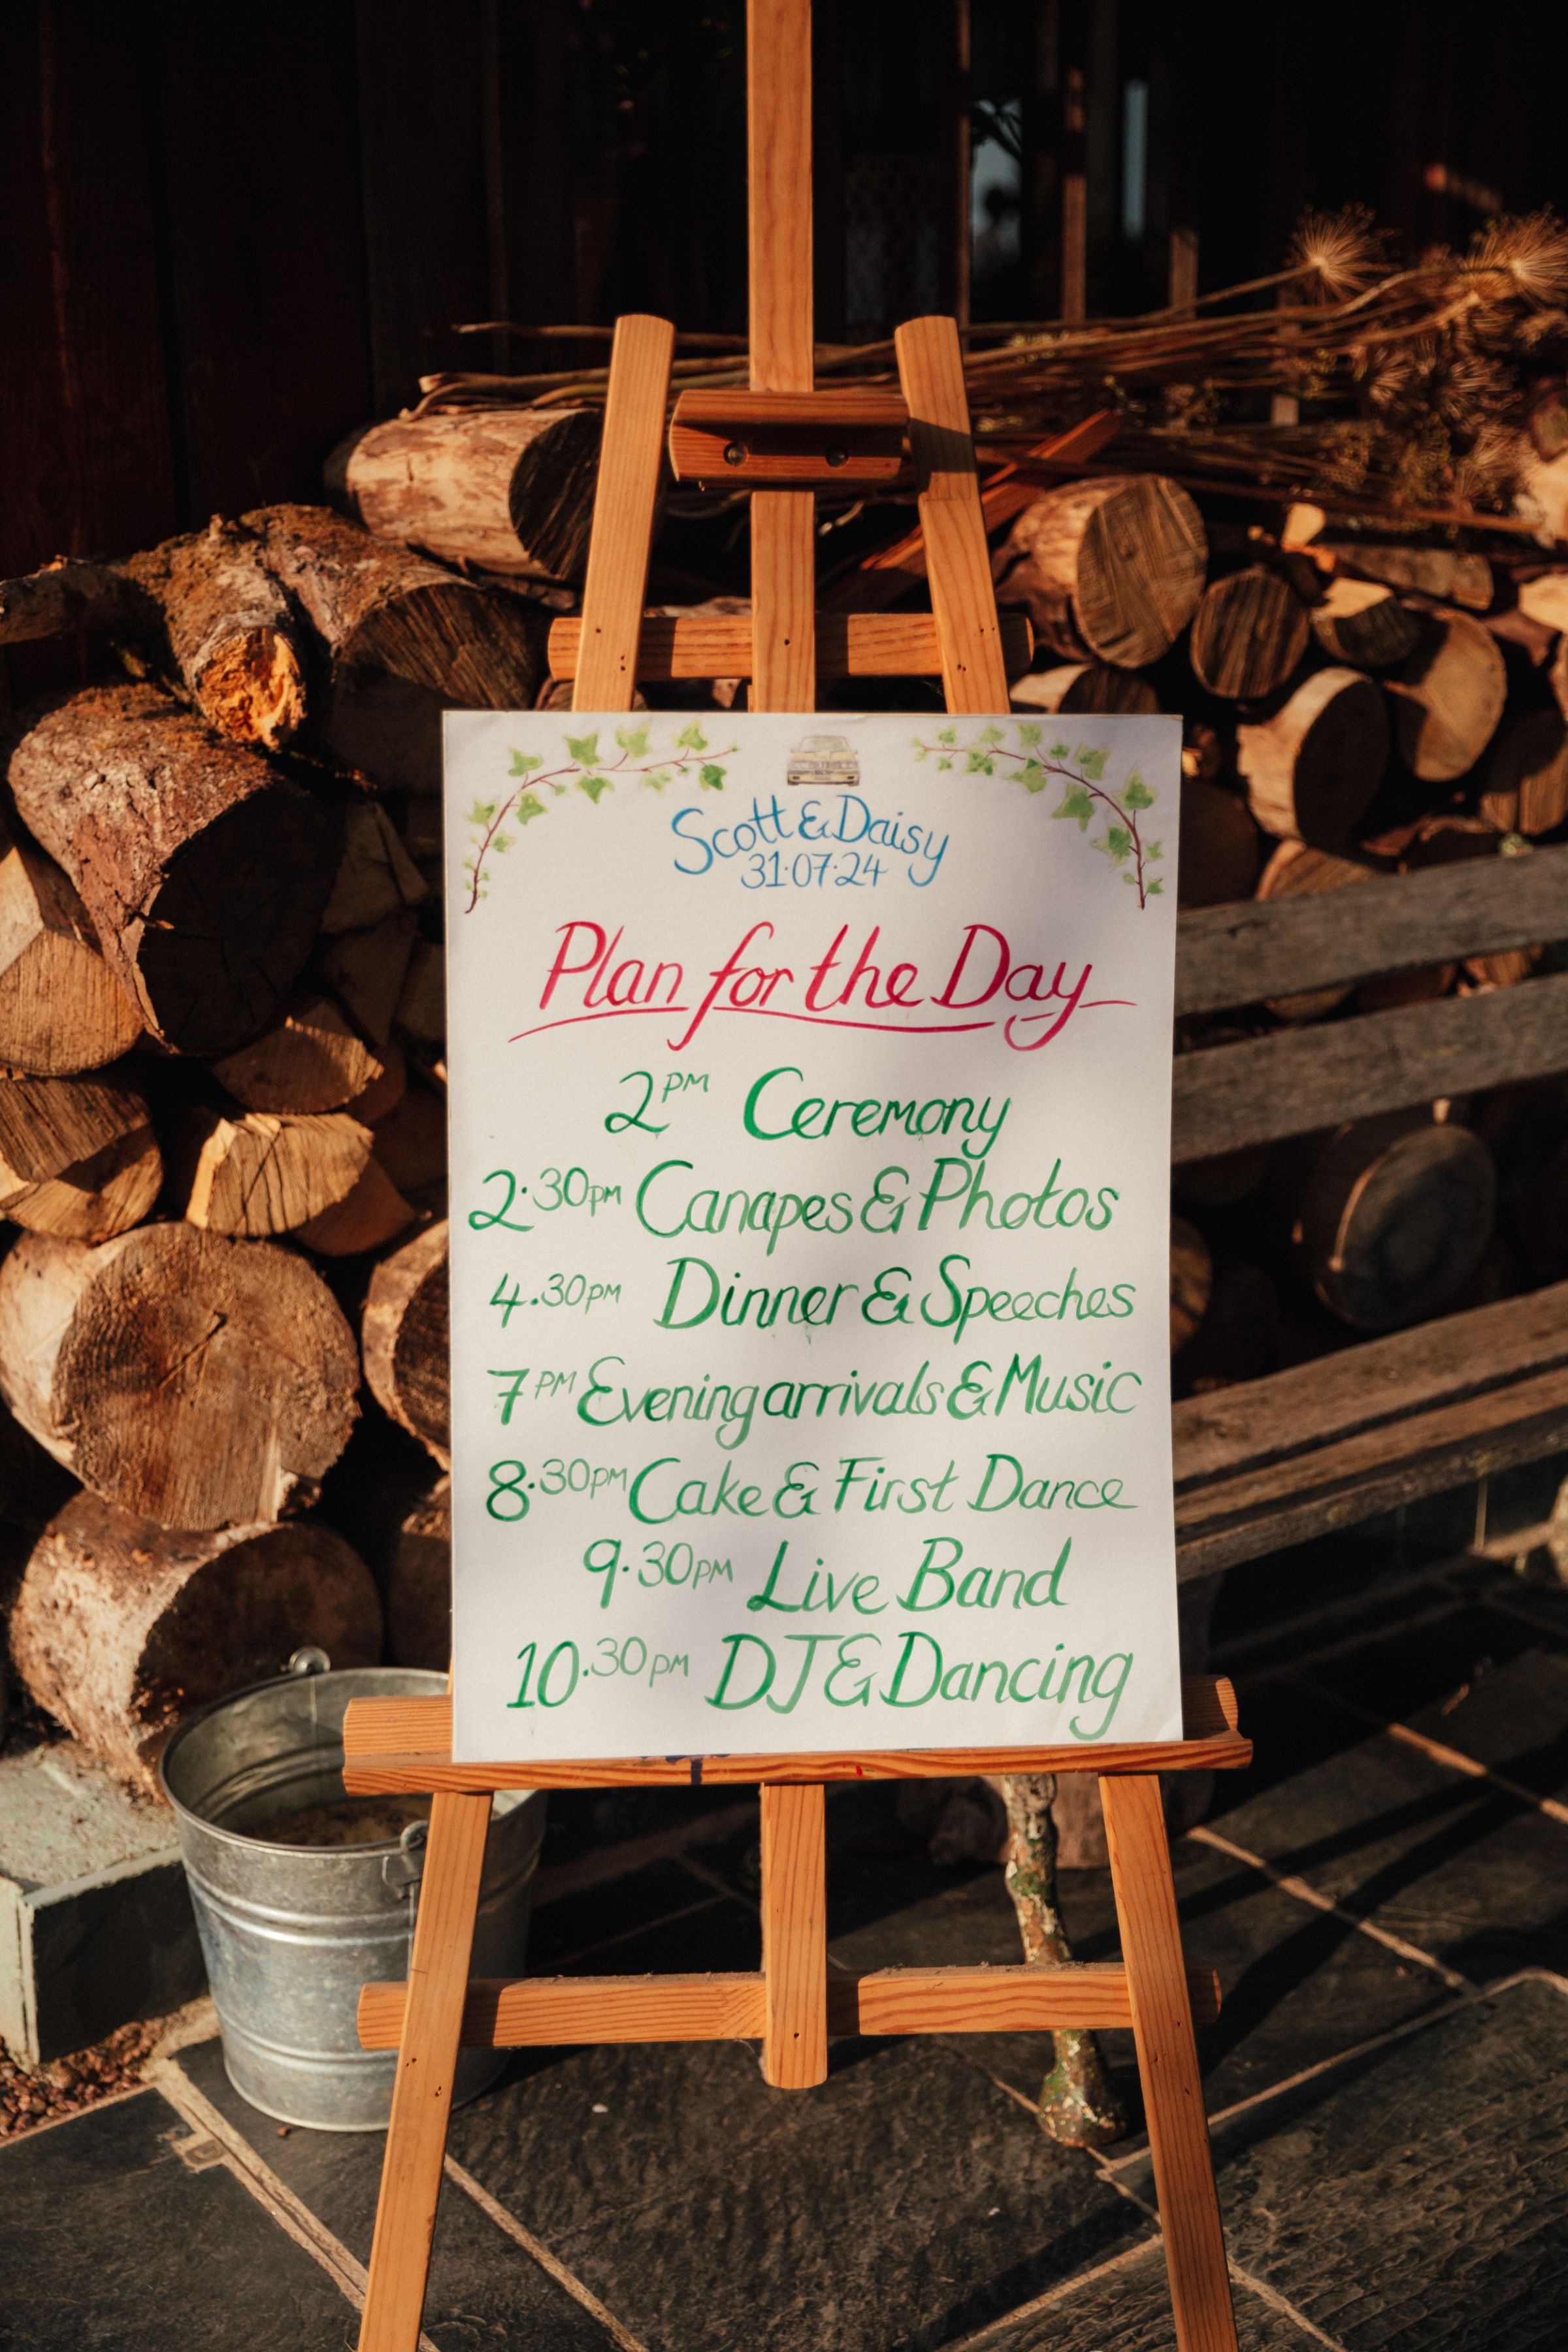 Scott & Daisy
31·07·24
Plan for the Day
2PM Ceremony
2·30PM Canapes & Photos
4.30PM Dinner & Speeches
7PM Evening arrivals & Music
8·30PM Cake & First Dance
9·30PM Live Band
10·30PM DJ & Dancing